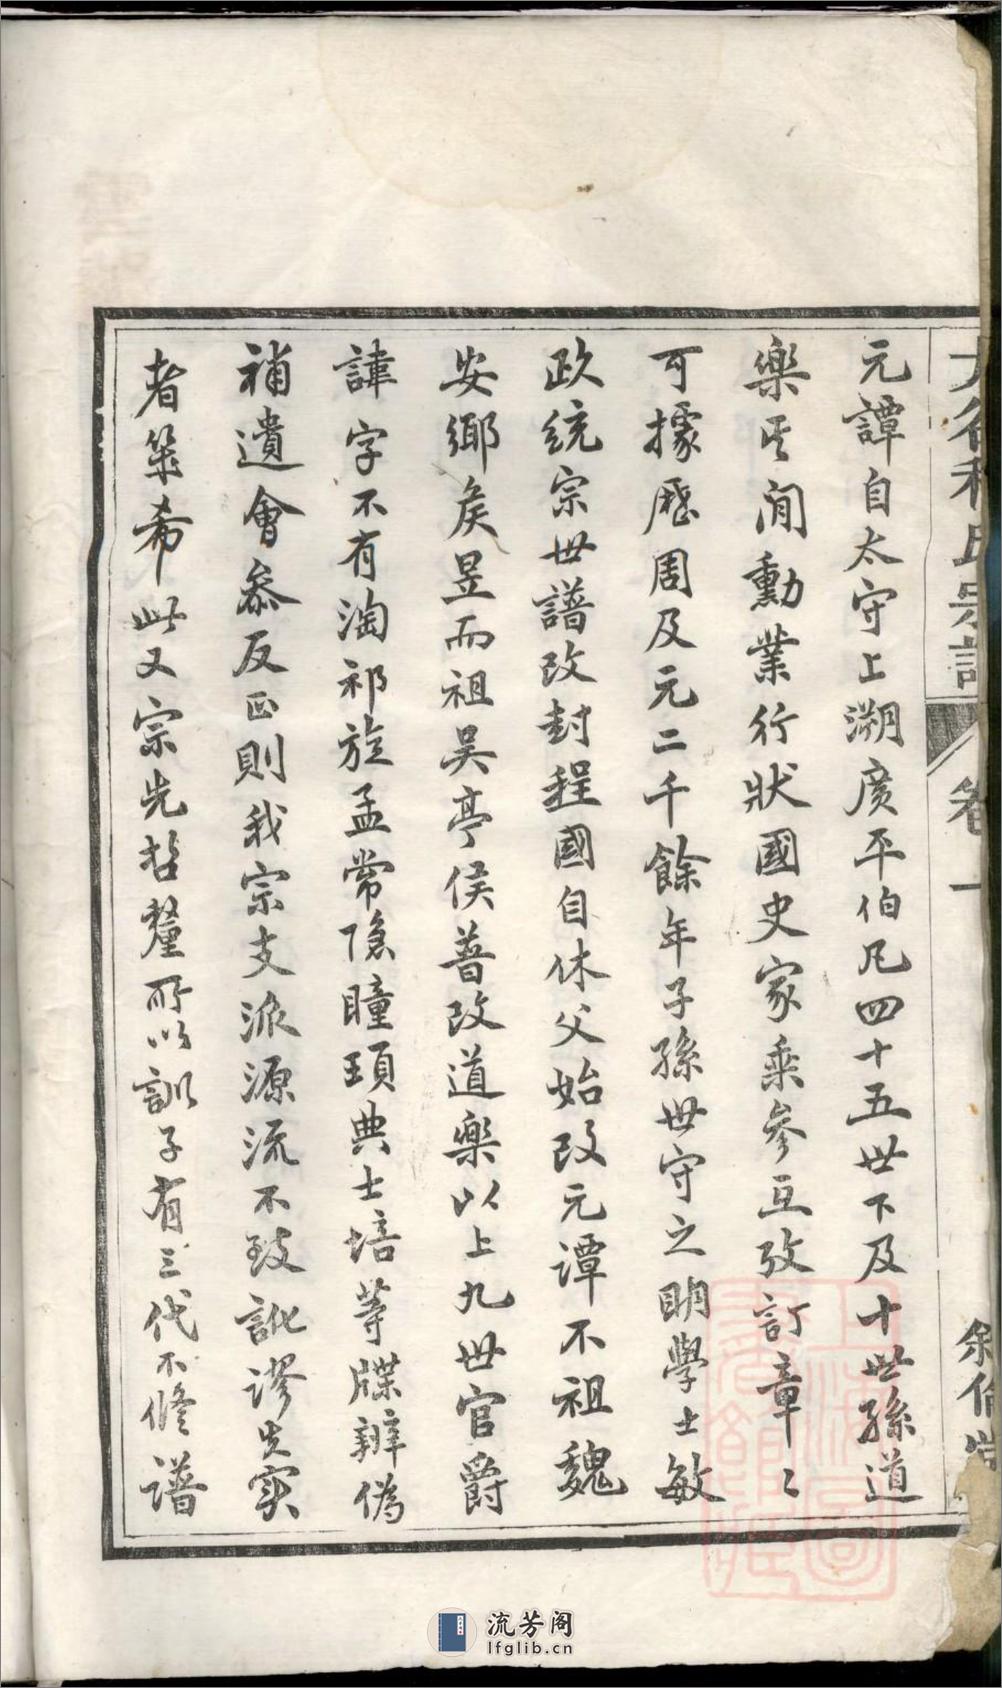 程氏宗譜
卷一
元譚自太守上溯廣平伯凡四十五世下及十世孫道
樂其間勳業行狀國史家乘參互攷訂章〻
可據歷周及元二千餘年子孫世守之明學士敏
政統宗世譜改封程國自休父始改元譚不祖魏
安鄉矦昱而祖吳亭侯普改道樂以上九世官爵
諱字不有淘祁旋孟常隐瞳頊典士培等牒辨僞
補遺會叅反正則我宗支派源流不致訛謬失实
者幾希此又宗先哲釐所以訓子有三代不修譜
流芳阁
lfglib.cn